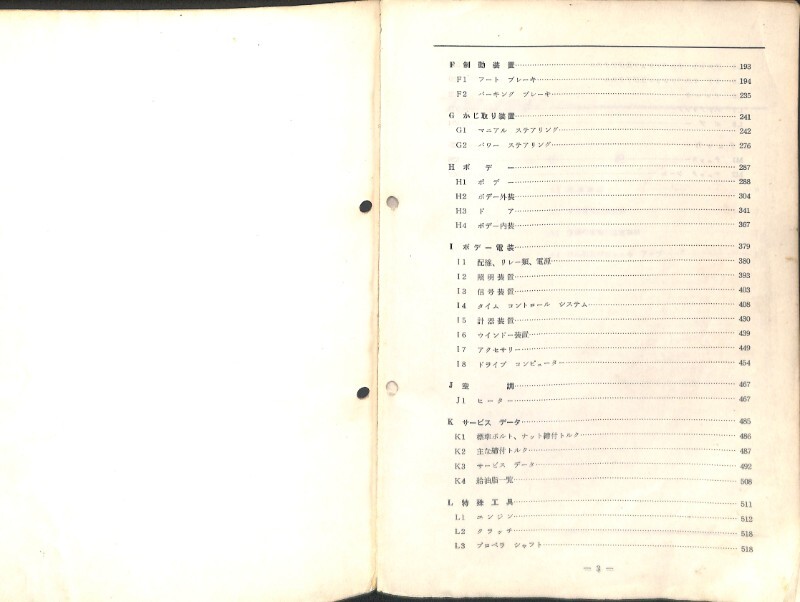 F 制動装置 193
F1 フート ブレーキ 194
F2 パーキング ブレーキ 235
G かじ取り装置 241
G1 マニアル ステアリング 242
G2 パワー ステアリング 276
H ボデー 287
H1 ボデー 288
H2 ボデー外装 304
H3 ドア 341
H4 ボデー内装 367
I ボデー電装 379
I1 配線、リレー類、電源 380
I2 照明装置 393
I3 信号装置 403
I4 タイム コントロール システム 408
I5 計器装置 430
I6 ウインドー装置 439
I7 アクセサリー 449
I8 ドライブ コンピュータ 454
J 空調 467
J1 ヒーター 467
K サービス データ 485
K1 標準ボルト、ナット締付トルク 486
K2 主な締付トルク 487
K3 サービス データ 492
K4 給油脂一覧 508
L 特殊工具 511
L1 エンジン 512
L2 クラッチ 518
L3 プロペラ シャフト 518
— 3 —